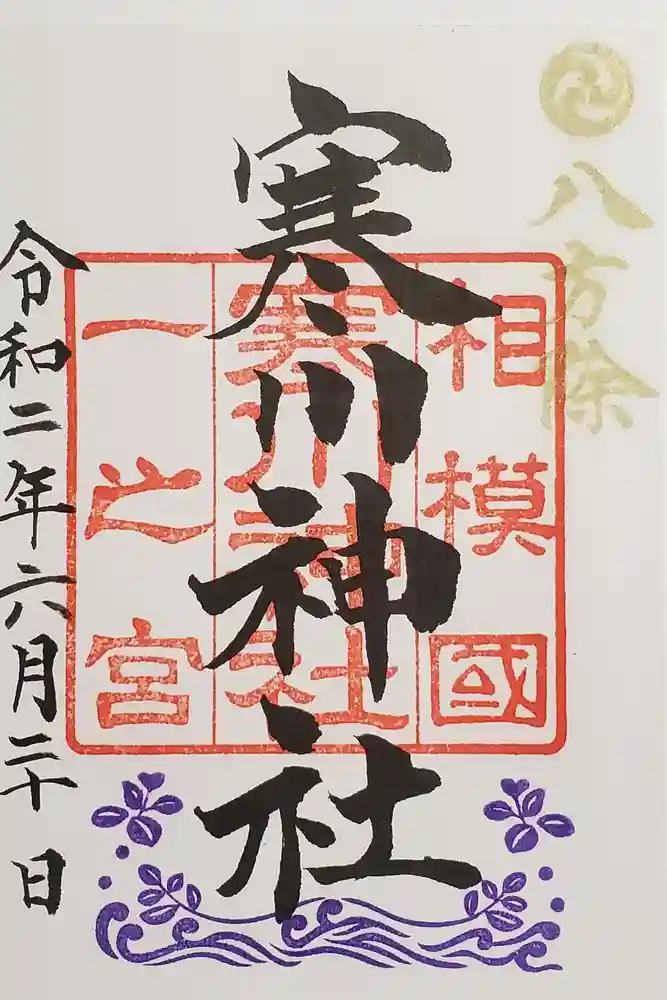 八方除
相模國
寒川神社
一之宮
寒川神社
令和二年六月二十日